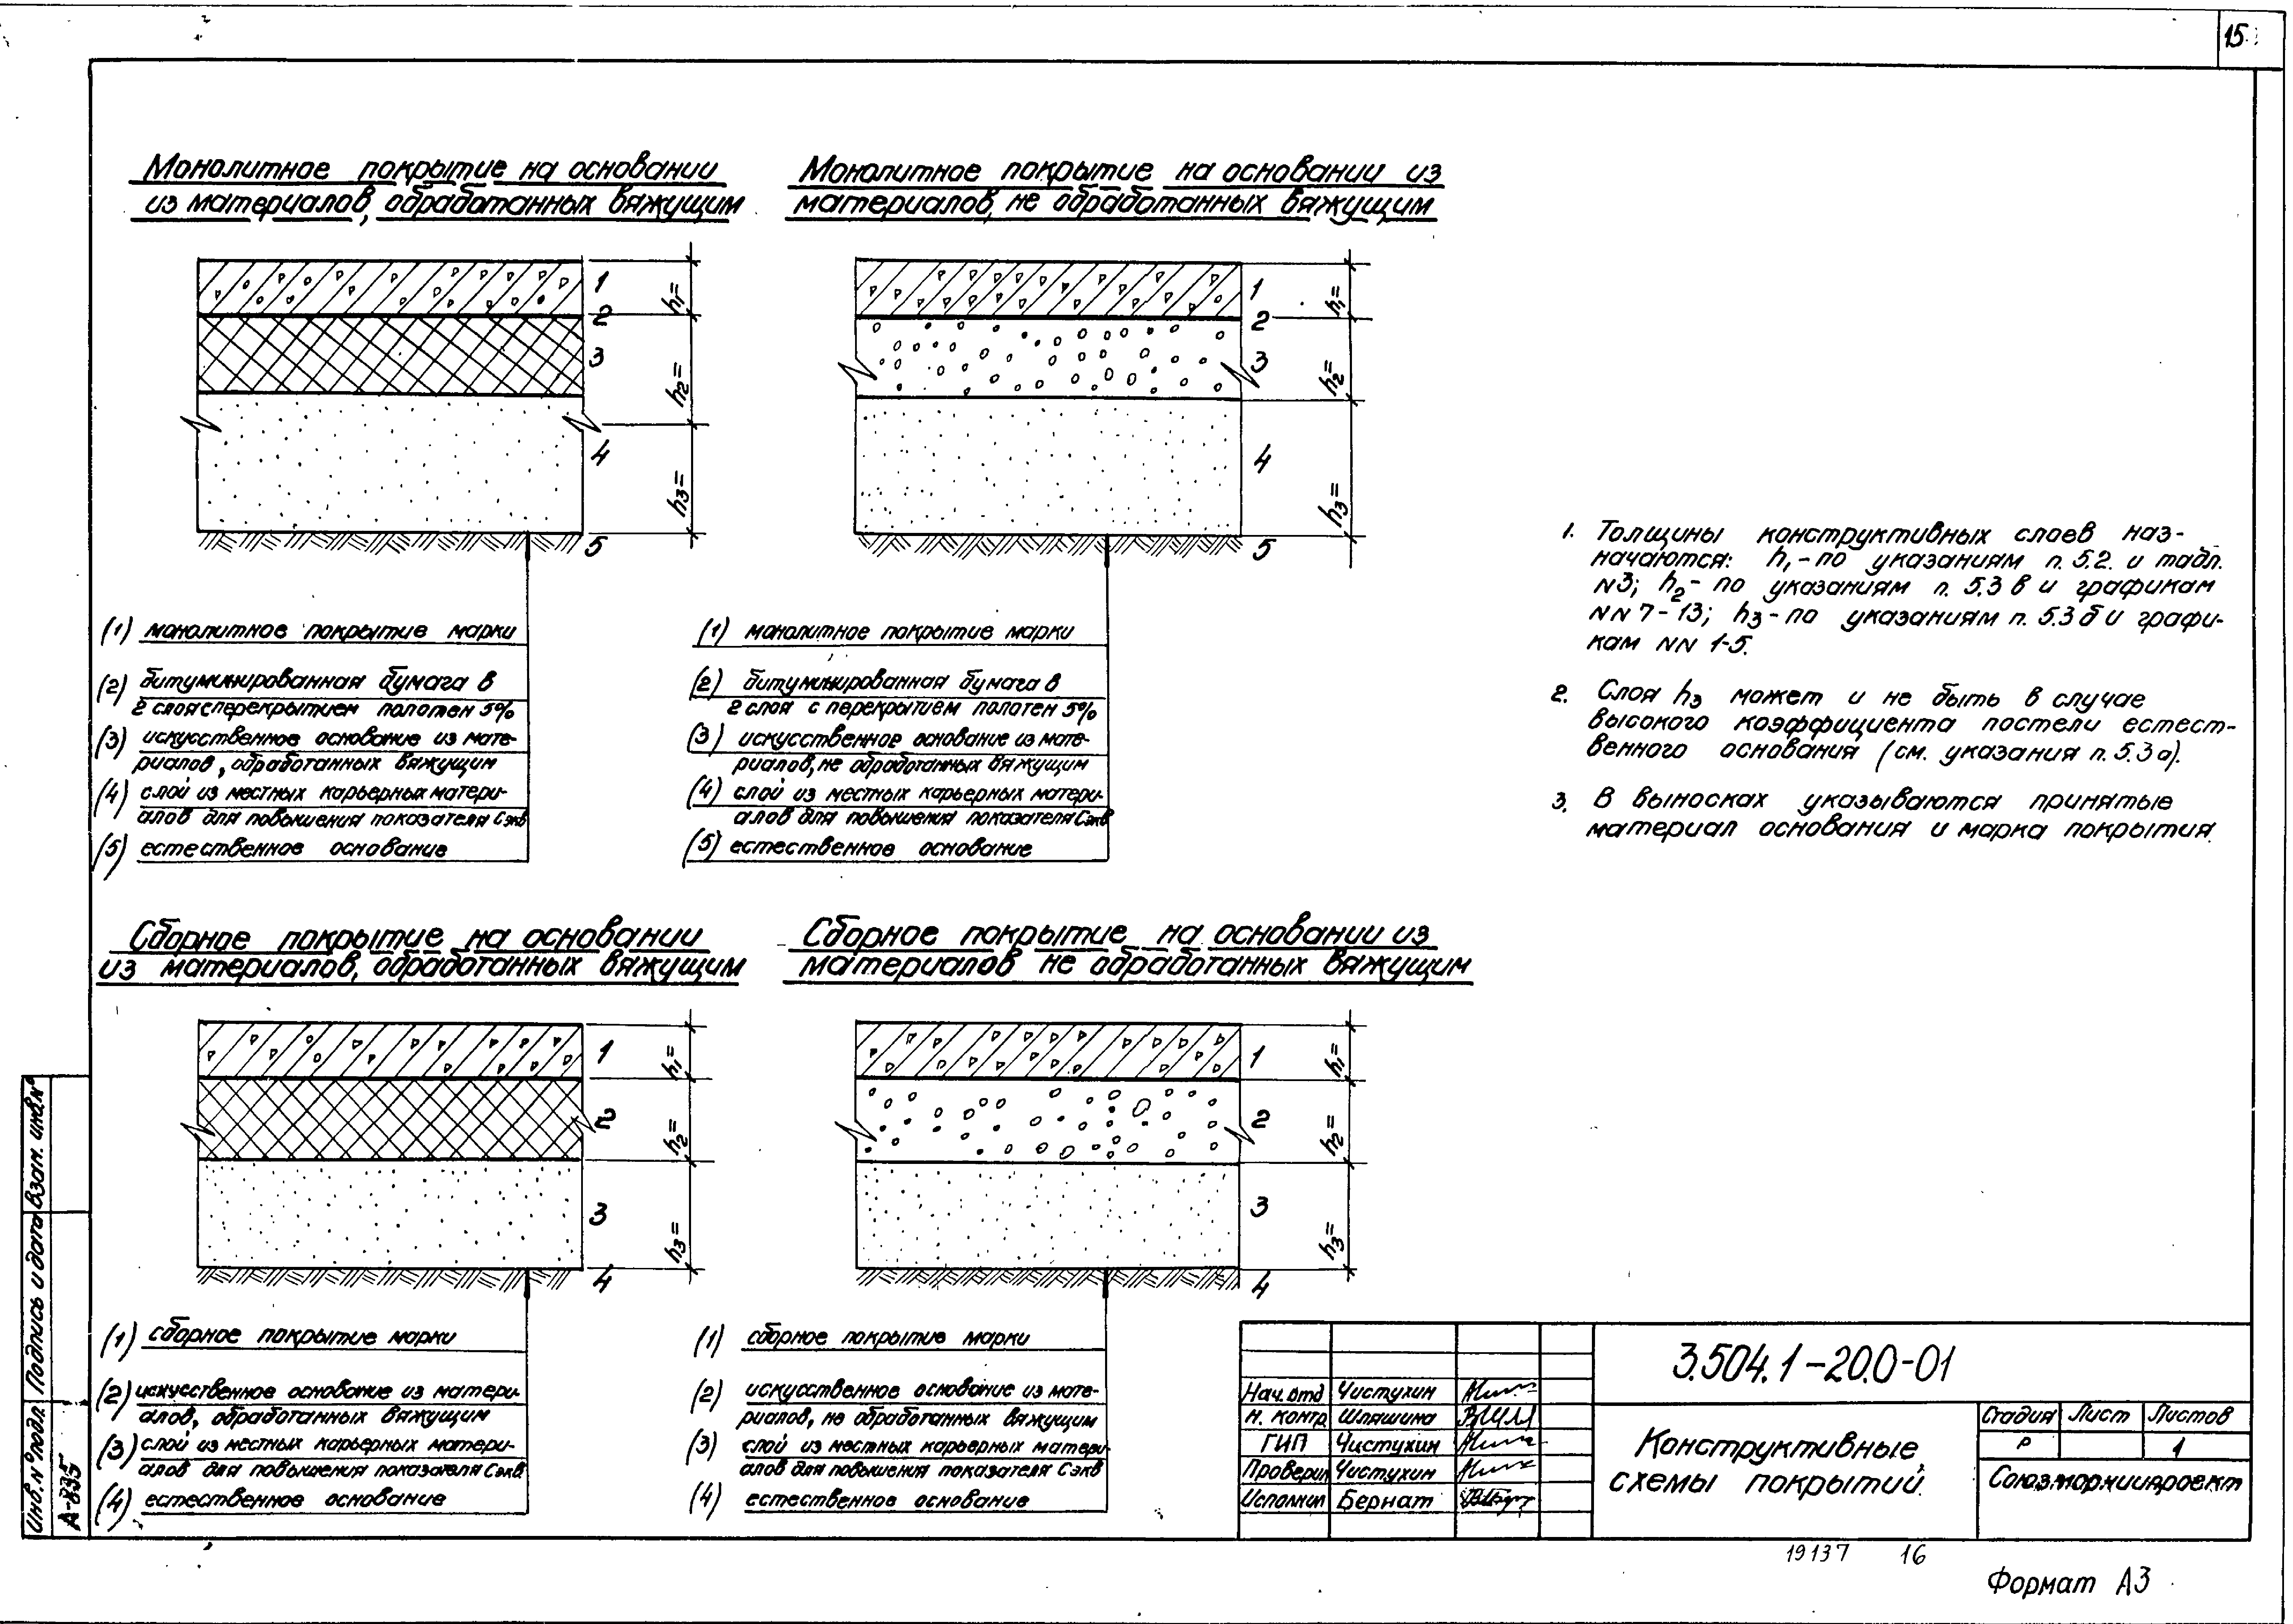 15
Монолитное покрытие на основании
из материалов, обработанных вяжущим
1
2
3
4
5
h₁=
h₂=
h₃=
(1) монолитное покрытие марки
(2) битуминированная бумага в
2 слоя с перекрытием полотен 5%
(3) искусственное основание из мате-
риалов, обработанных вяжущим
(4) слой из местных карьерных матери-
алов для повышения показателя Сэкв
(5) естественное основание
Монолитное покрытие на основании из
материалов, не обработанных вяжущим
1
2
3
4
5
h₁=
h₂=
h₃=
(1) монолитное покрытие марки
(2) битуминированная бумага в
2 слоя с перекрытием полотен 5%
(3) искусственное основание из мате-
риалов, не обработанных вяжущим
(4) слой из местных карьерных матери-
алов для повышения показателя Сэкв
(5) естественное основание
1. Толщины конструктивных слоев наз-
начаются: h₁-по указаниям п. 5.2. и табл.
N3; h₂- по указаниям п. 5.3 в и графикам
NN 7-13; h₃-по указаниям п. 5.3 б и графи-
кам NN 1-5.
2. Слоя h₃ может и не быть в случае
высокого коэффициента постели естест-
венного основания (см. указания п. 5.3 а).
3. В выносках указываются принятые
материал основания и марка покрытия.
Сборное покрытие на основании
из материалов, обработанных вяжущим
1
2
3
4
h₁=
h₂=
h₃=
(1) сборное покрытие марки
(2) искусственное основание из матери-
алов, обработанных вяжущим
(3) слой из местных карьерных матери-
алов для повышения показателя Сэкв
(4) естественное основание
Сборное покрытие на основании из
материалов не обработанных вяжущим
1
2
3
4
h₁=
h₂=
h₃=
(1) сборное покрытие марки
(2) искусственное основание из мате-
риалов, не обработанных вяжущим
(3) слой из местных карьерных матери-
алов для повышения показателя Сэкв
(4) естественное основание
Взам. инв.№
Подпись и дата
Инв.№ подл.
А-835
3.504.1-20.0-01
Нач. отд Чистухин
Н. контр Шляшина
ГИП Чистухин
Проверил Чистухин
Исполнил Бернат
Конструктивные
схемы покрытий.
Стадия Лист Листов
Р 1
Союзморниипроект
19137 16
Формат А3